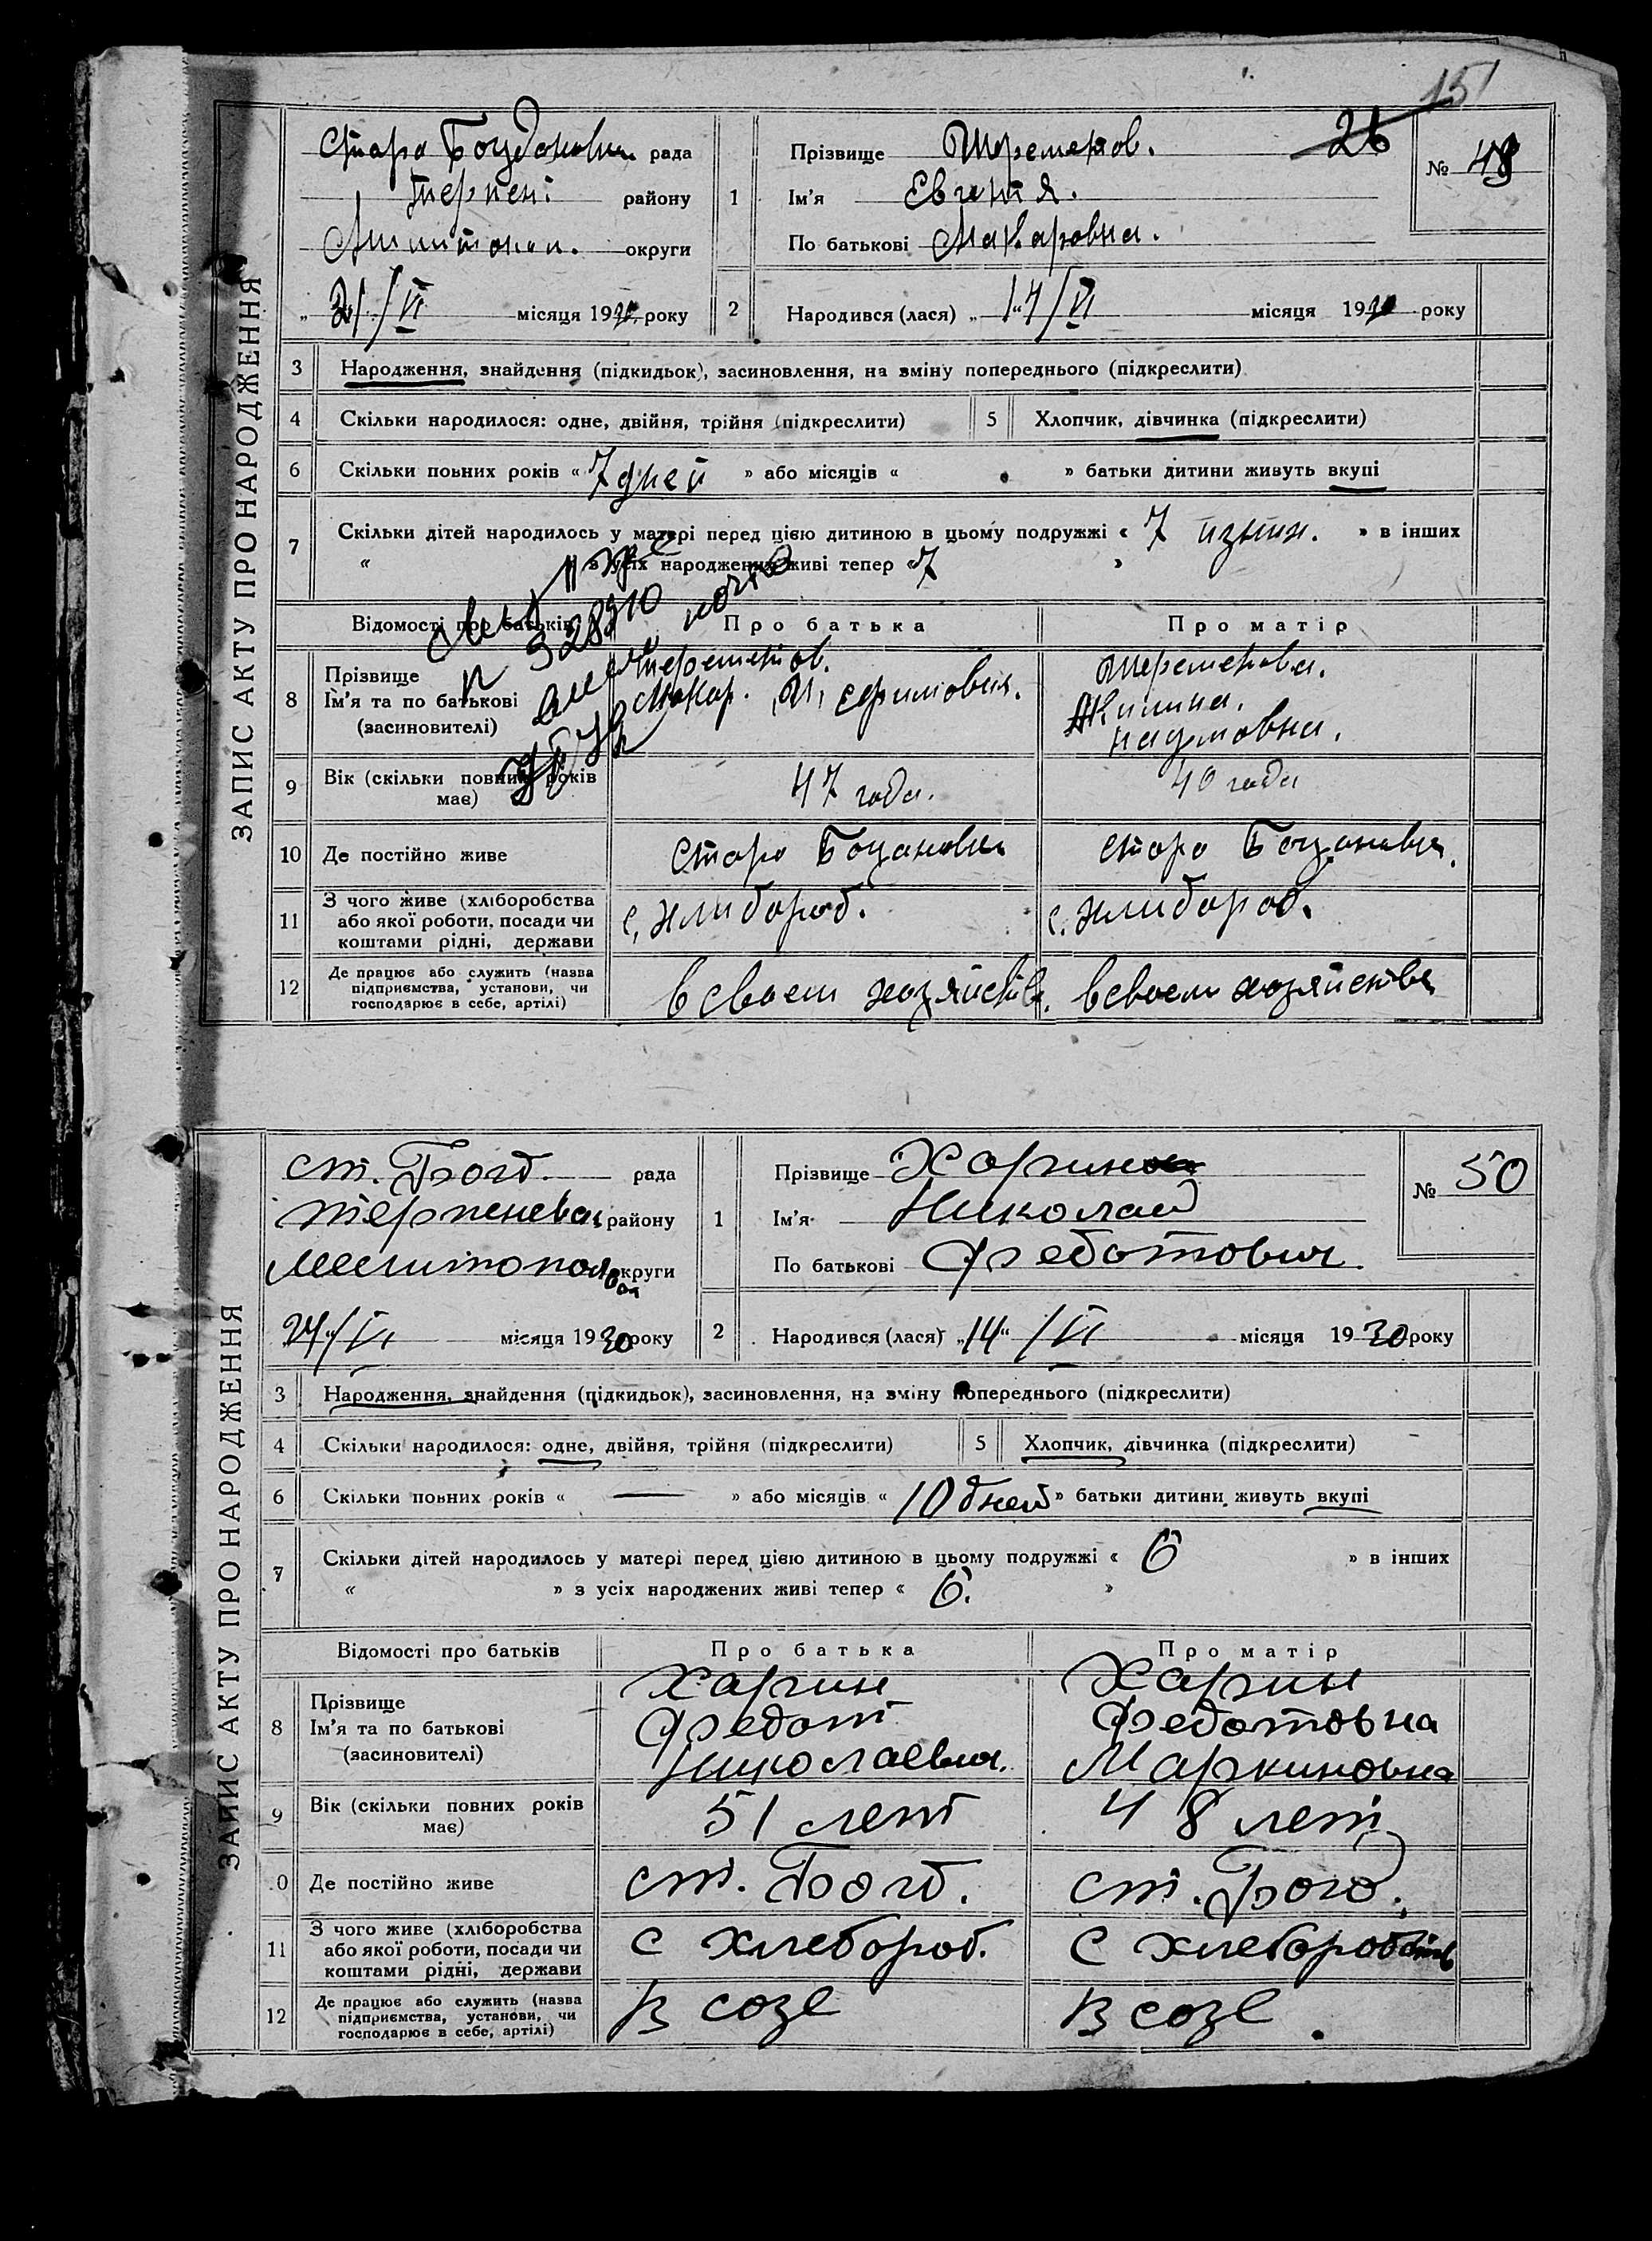 151
26
ЗАПИС АКТУ ПРО НАРОДЖЕННЯ
Старо Богдановка рада
Терпен. району
округи
21/VI місяця 1930 року
1 Прізвище Шереметов.
Ім'я
По батькові Макаровна.
№ 49
2 Народився (лася) „14/VI місяця 1930 року
3 Народження, знайдення (підкидьок), засиновлення, на зміну попереднього (підкреслити)
4 Скільки народилося: одне, двійня, трійня (підкреслити) 5 Хлопчик, дівчинка (підкреслити)
6 Скільки повних років « 7 дней » або місяців « » батьки дитини живуть вкупі
7 Скільки дітей народилось у матері перед цією дитиною в цьому подружжі « 7 » в інших
« » з усіх народжених живі тепер « 7 »
Відомості про батьків Про батька Про матір
8 Прізвище
Ім'я та по батькові
(засновителі)
Шереметов.
Макар. Ефимович.
Шереметова.
Акилина.
Наумовна.
9 Вік (скільки повних років має) 47 года. 40 года
10 Де постійно живе Старо Богдановка Старо Богдановка.
11 З чого живе (хліборобства
або якої роботи, посади чи
коштами рідні, держави
с. хлибороб. с. хлибороб.
12 Де працює або служить (назва
підприємства, установи, чи
господарює в себе, артілі)
в своем хозяйстве. в своем хозяйстве
ЗАПИС АКТУ ПРО НАРОДЖЕННЯ
ст. Богд. рада
Терпеневск району
Мелитопольск округи
24/VI місяця 1930 року
1 Прізвище Харин
Ім'я Николай
По батькові Федотович.
№ 50
2 Народився (лася) „14" /VI місяця 1930 року
3 Народження, знайдення (підкидьок), засиновлення, на зміну попереднього (підкреслити)
4 Скільки народилося: одне, двійня, трійня (підкреслити) 5 Хлопчик, дівчинка (підкреслити)
6 Скільки повних років « — » або місяців « 10 дней » батьки дитини живуть вкупі
7 Скільки дітей народилось у матері перед цією дитиною в цьому подружжі « 6 » в інших
« » з усіх народжених живі тепер « 6. »
Відомості про батьків Про батька Про матір
8 Прізвище
Ім'я та по батькові
(засиновителі)
Харин
Федот
Николаевич.
Харин
Федотовна
Маркиновна
9 Вік (скільки повних років має) 51 лет 48 лет
10 Де постійно живе ст. Богд. ст. Богд.
11 З чого живе (хліборобства
або якої роботи, посади чи
коштами рідні, держави
с хлебороб. с хлебороб
12 Де працює або служить (назва
підприємства, установи, чи
господарює в себе, артілі)
В созе В созе.